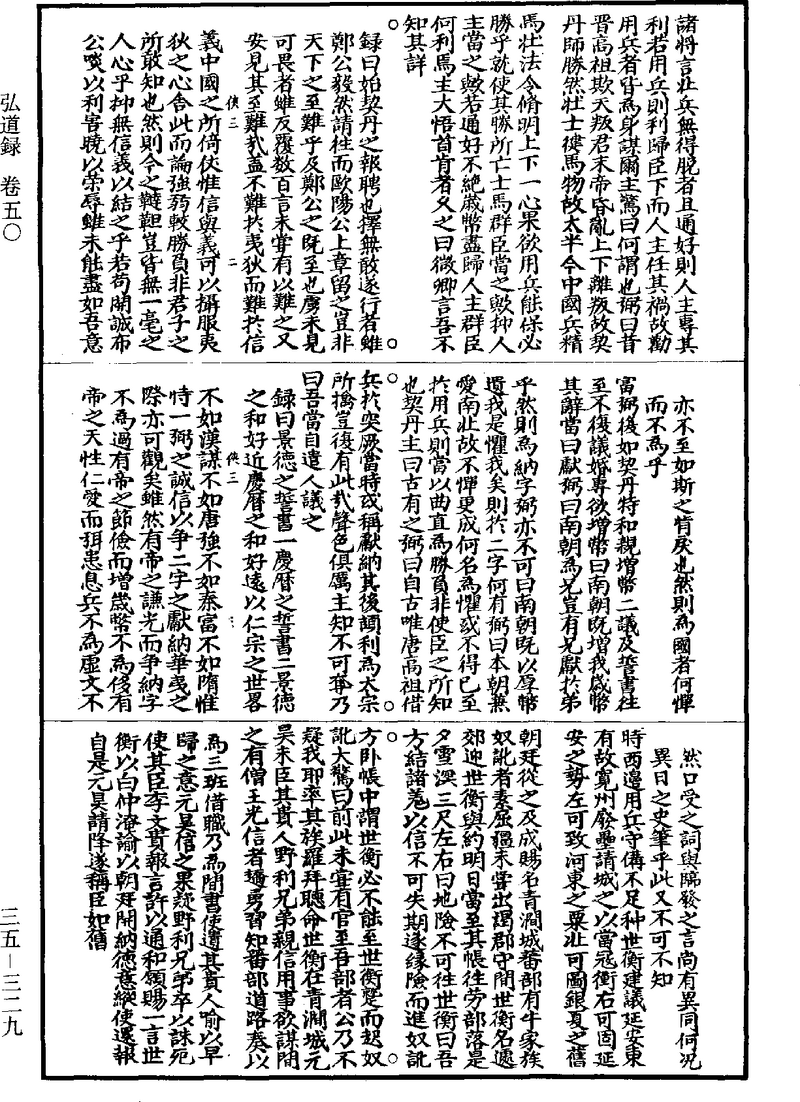 諸將言北兵無得脫者且通好則人主專其
利若用兵則利歸臣下而人主任其禍故勸
用兵者皆為身謀爾主驚曰何謂也弼曰昔
晉高祖欺天叛君末帝昏亂上下離叛故契
丹師勝然壯士徤馬物故太半今中國兵精
馬壯法令脩明上下一心果欲用兵能保必
勝乎就使其勝所亡士馬群臣當之歟抑人
主當之歟若通好不絕歲幣盡歸人主群臣
何利焉主大悟首肯者久之曰微卿言吾不
知其詳
○錄曰始契丹之報聘也擇無敢遂行者雖○
鄭公毅然請往而歐陽公上章留之豈非
天下之至難乎及鄭公之既至也虜未見
可畏者雖反覆數百言未嘗有以難之又
安見其至難哉蓋不難於夷狄而難於信
俠三　二
義中國之所倚俠惟信與義可以攝服夷
狄之心舍此而論強弱較勝負非君子之
所敢知也然則今之韃靼豈皆無一毫之
人心乎抑無信義以結之乎若苟開誠布
公啖以利害曉以榮辱雖未能盡如吾意
亦不至如斯之情戾也然則為國者何憚
而不為乎
富弼後如契丹特和親增幣二議及誓書往
至不復議婚專欲增幣曰南朝既增我歲幣
其辭當曰獻弼曰南朝為兄豈有兄獻於弟
乎然則為納字弼亦不可曰南朝既以厚幣
遺我是懼我矣則於二字何有弼曰本朝兼
愛南北故不憚更成何名為懼或不得已至
於用兵則當以曲直為勝負非使臣之所知
也契丹主曰古有之弼曰自古唯唐高祖借
○兵於突厥當時或稱獻納其後頡利為太宗○
所擒豈復有此哉聲色俱厲主知不可奪乃
曰吾當自遣人議之
錄曰景德之誓書一慶曆之誓書二景德
之和好近慶曆之和好遠以仁宗之世畧
俠三
不如漢謀不如唐強不如秦富不如隋惟
恃一弼之誠信以爭二字之獻納華夷之
際亦可觀矣雖然有帝之謙光而爭納字
不為過有帝之節儉而增歲幣不為侈有
帝之天性仁愛而弭患息兵不為虛文不
然口受之詞與臨發之言尚有異同何況
異日之史筆乎此又不可不知
時西邊用兵守備不足种世衡建議延安東
有故寬州廢壘請城之以當冦衝右可固延
安之勢左可致河東之粟北可圖銀夏之舊
朝廷從之及成賜名青澗城蕃部有牛家族
奴訛者素屈彊未嘗出謁郡守聞世衡名遽
郊迎世衡與約明日當至其帳往勞部落是
夕雪深三尺左右曰地險不可往世衡曰吾
方結諸羌以信不可失期遂緣險而進奴訛○
○方卧帳中謂世衡必不能至世衡蹙而起奴
訛大驚曰前此未嘗有官至吾部者公乃不
疑我耶率其族羅拜聽命世衡在青澗城元
昊未臣其貴人野利兄弟親信用事欲謀間
之有僧王光信者趫勇習知蕃部道路奏以
為三班借職乃為間書使遺其貴人喻以早
歸之意元昊信之果疑野利兄弟卒以誅死
使其臣李文貴報言許以通和願賜一言世
衡以白仲淹諭以朝廷開納德意縱使還報
自是元昊請降遂稱臣如舊
弘道録　卷五〇
三五—三二九